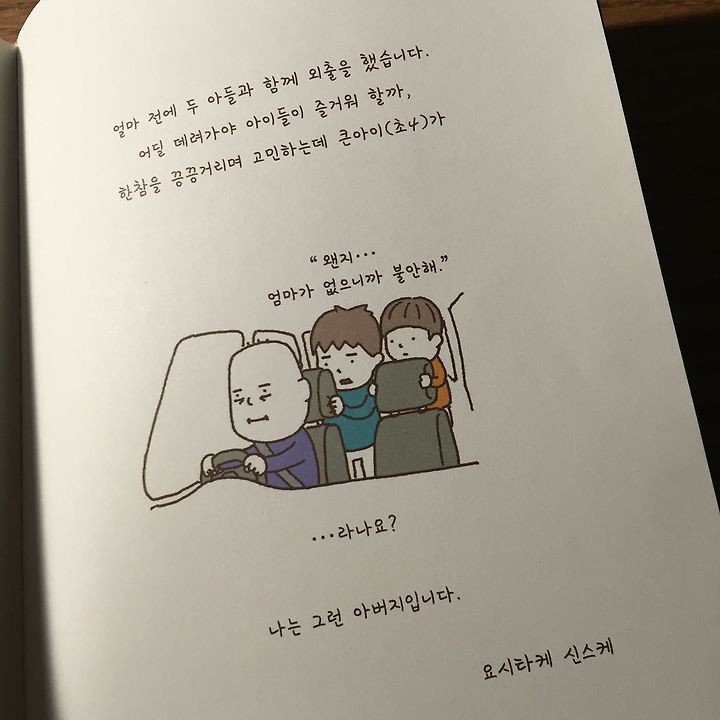 얼마 전에 두 아들과 함께 외출을 했습니다.
어딜 데려가야 아이들이 즐거워 할까,
한참을 끙끙거리며 고민하는데 큰아이(초4)가
“왠지...
엄마가 없으니까 불안해.”
...라나요?
나는 그런 아버지입니다.
요시타케 신스케